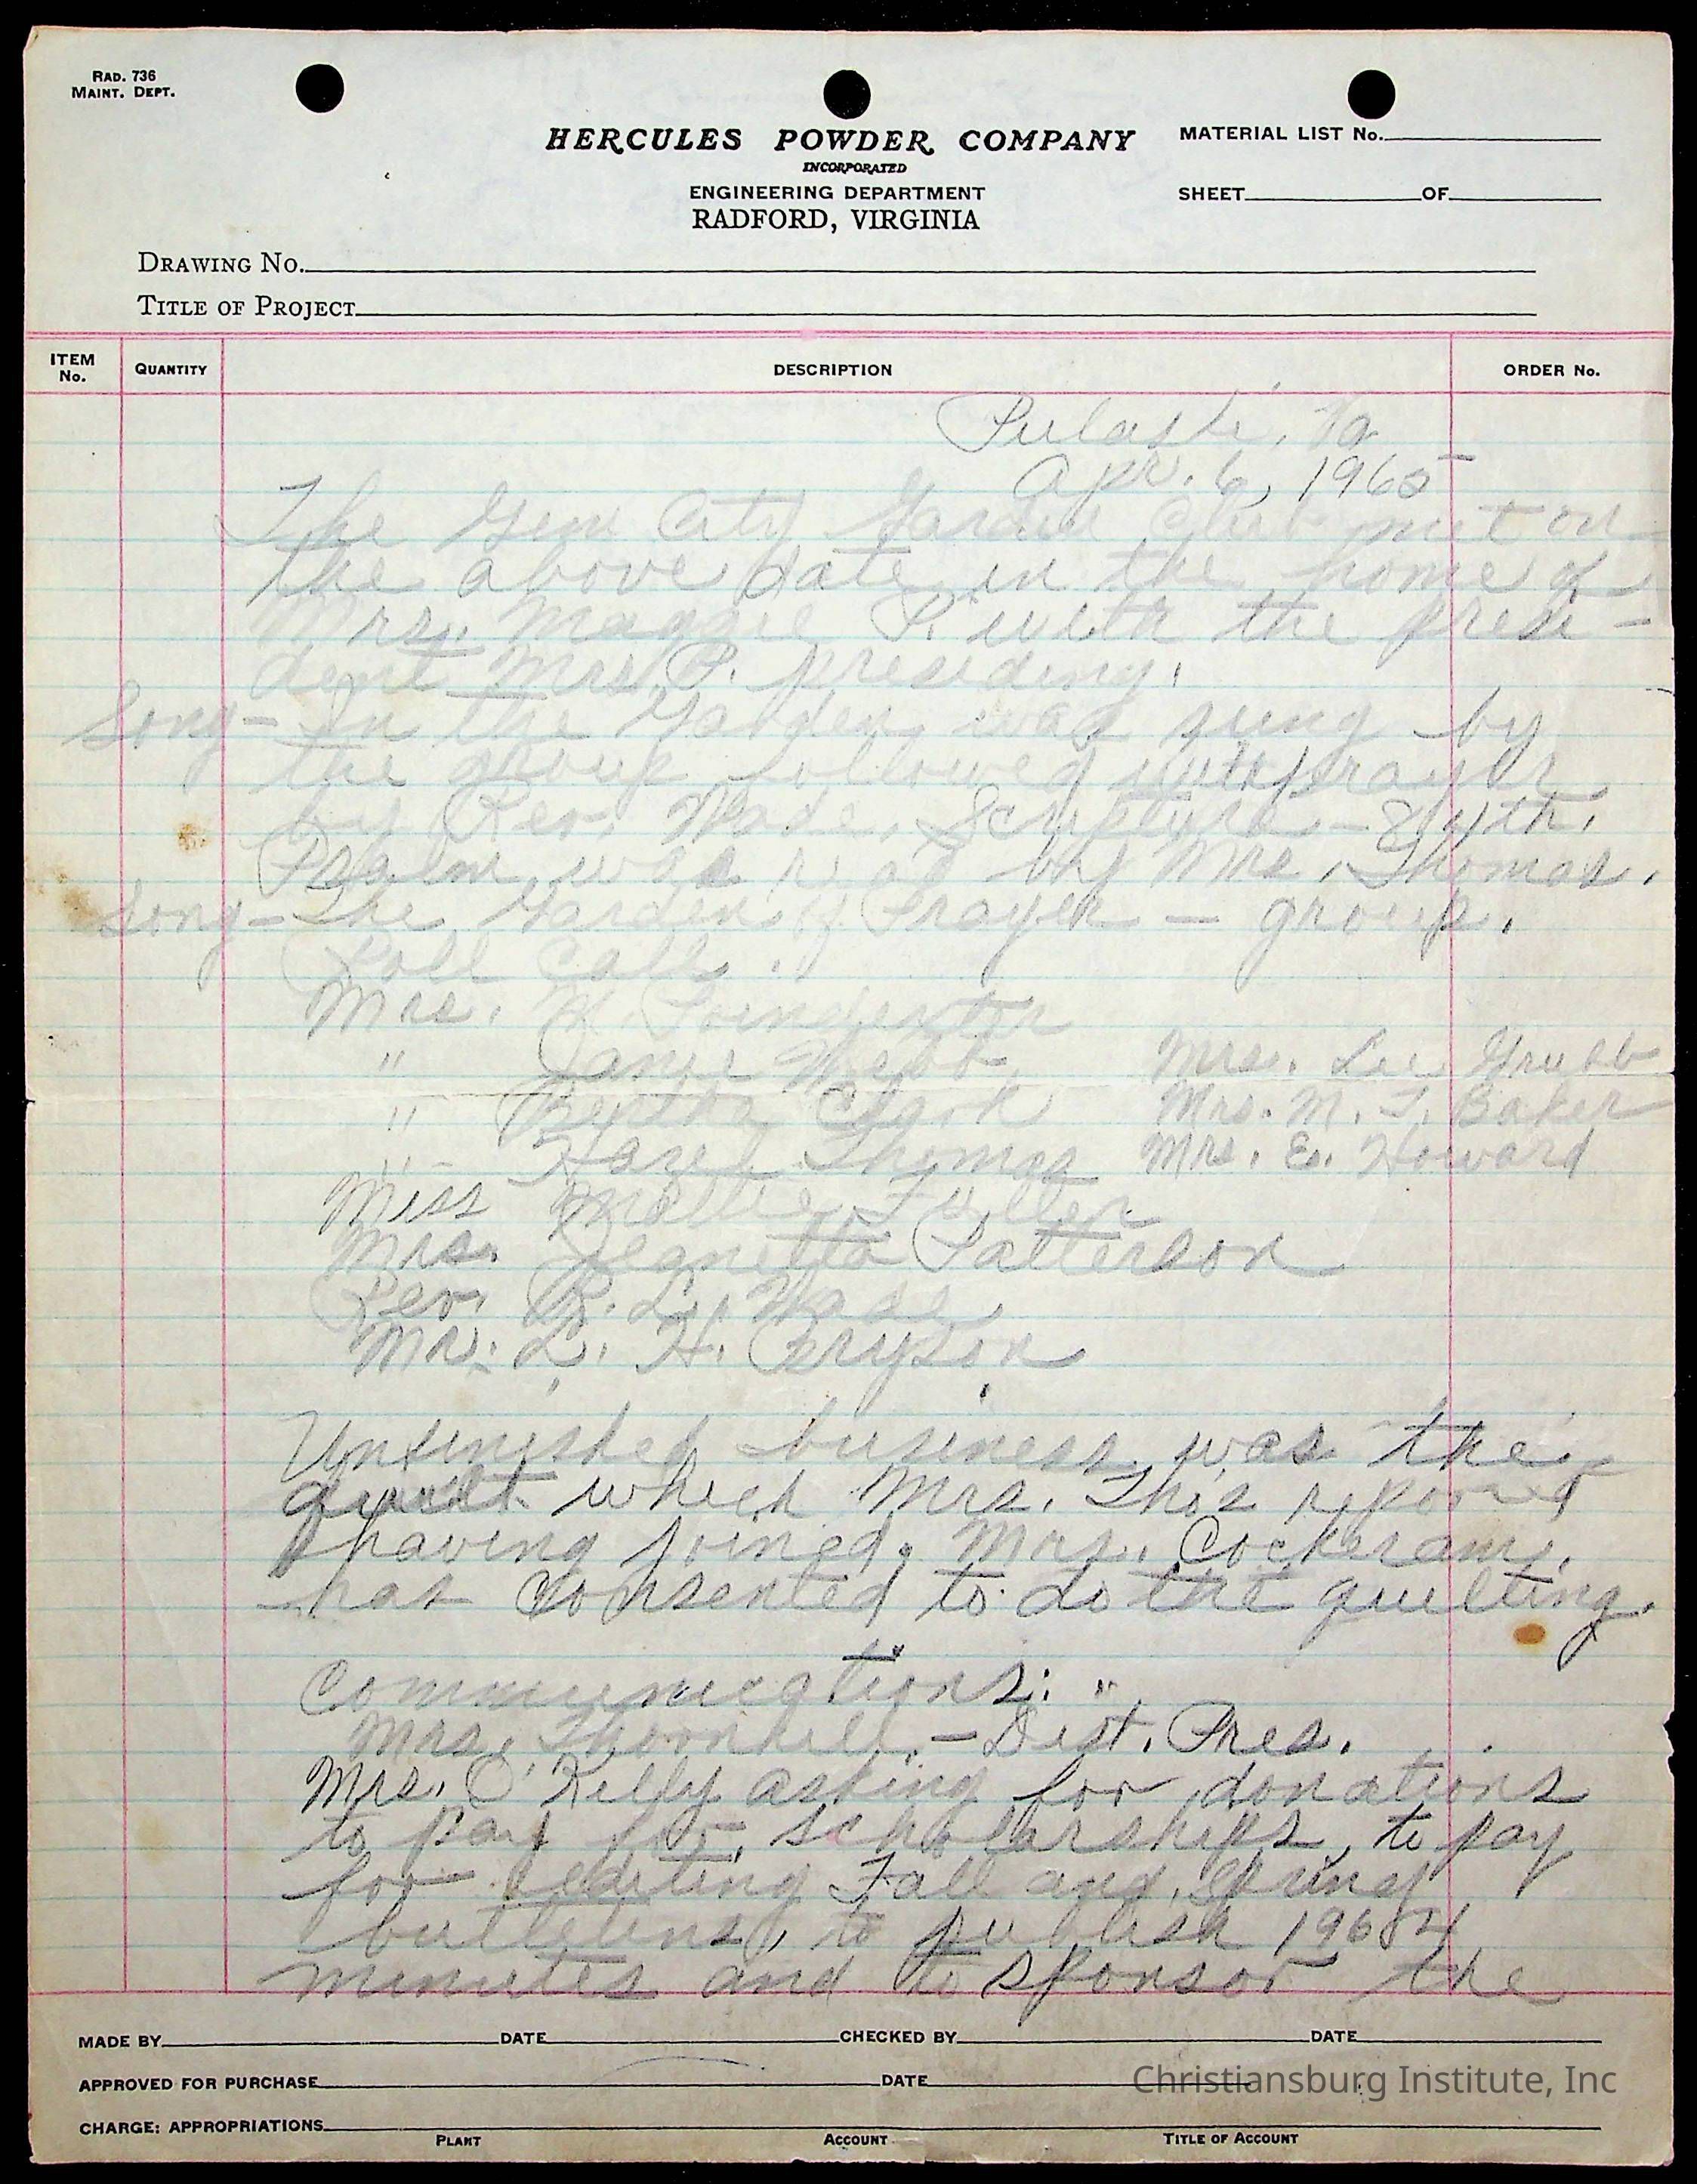 RAD. 736
MAINT. DEPT.
HERCULES POWDER COMPANY
INCORPORATED
ENGINEERING DEPARTMENT
RADFORD, VIRGINIA
MATERIAL LIST No.
SHEET OF
DRAWING No.
TITLE OF PROJECT
ITEM No. QUANTITY DESCRIPTION ORDER No.
Pulaski, Va
Apr. 6, 1965
The Gem City Garden Club met on
the above date in the home of
Mrs. Maggie P. with the presi-
dent Mrs. P. presiding.
Song - In the Garden was sung by
the group followed with prayer
by Rev. Wade. Scripture - 84th.
Psalm was read by Mrs. Thomas.
Song - The Garden of Prayer - group.
Roll Call.
Mrs. M. Poindexter
" Janie Webb Mrs. Lee Grubb
" Bertha Clark Mrs. M. T. Baker
" Hazel Thomas Mrs. E. Howard
Miss Mallie Fuller
Mrs. Jeanetta Patterson
Rev. R. L. Wade
Mr. L. H. Bryson
Unfinished business was the
quilt which Mrs. Tho's reported
having joined. Mrs. Cockeram,
has consented to do the quilting.
Communications:
Mrs. Thornhill. - Dist. Pres.
Mrs. O'Kelly asking for donations
to pay for scholarships, to pay
for editing Fall and Spring
bulletins, to publish 1964
minutes and to sponsor the
MADE BY DATE CHECKED BY DATE
APPROVED FOR PURCHASE DATE
Christiansburg Institute, Inc
CHARGE: APPROPRIATIONS
PLANT ACCOUNT TITLE OF ACCOUNT